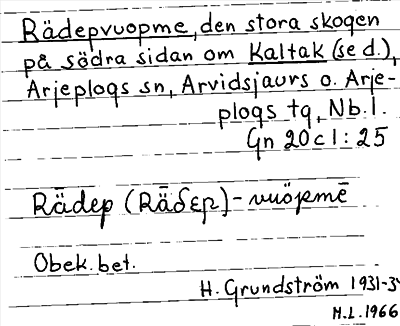 Rädepvuopme, den stora skogen
på södra sidan om Kaltak (se d.),
Arjeplogs sn, Arvidsjaurs o. Arje-
plogs tg, Nb. l.
Gn 20 c l : 25
Rǟdep (Rǟδεp)-vuöpmē
Obek. bet.
H. Grundström 1931-34
M.L. 1966